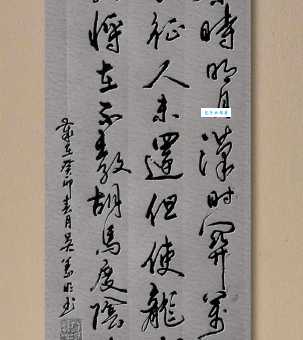 時明月漢時關萬
征人未還但使龍
將在不教胡馬度陰
歲在癸卯春月吴